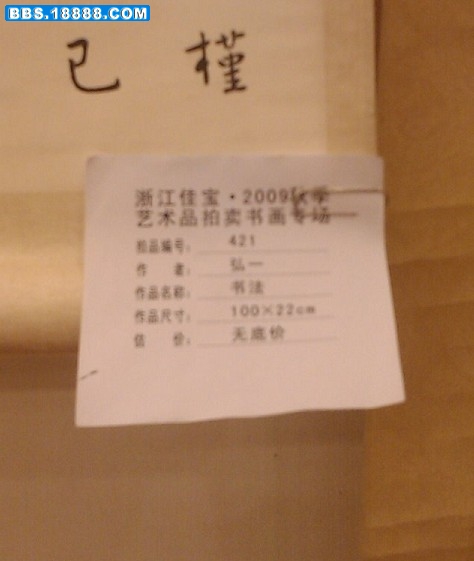 BBS.18888.COM
已 槿
浙江佳宝·2009秋季
艺术品拍卖书画专场
拍品编号： 421
作 者： 弘一
作品名称： 书法
作品尺寸： 100×22cm
估 价： 无底价